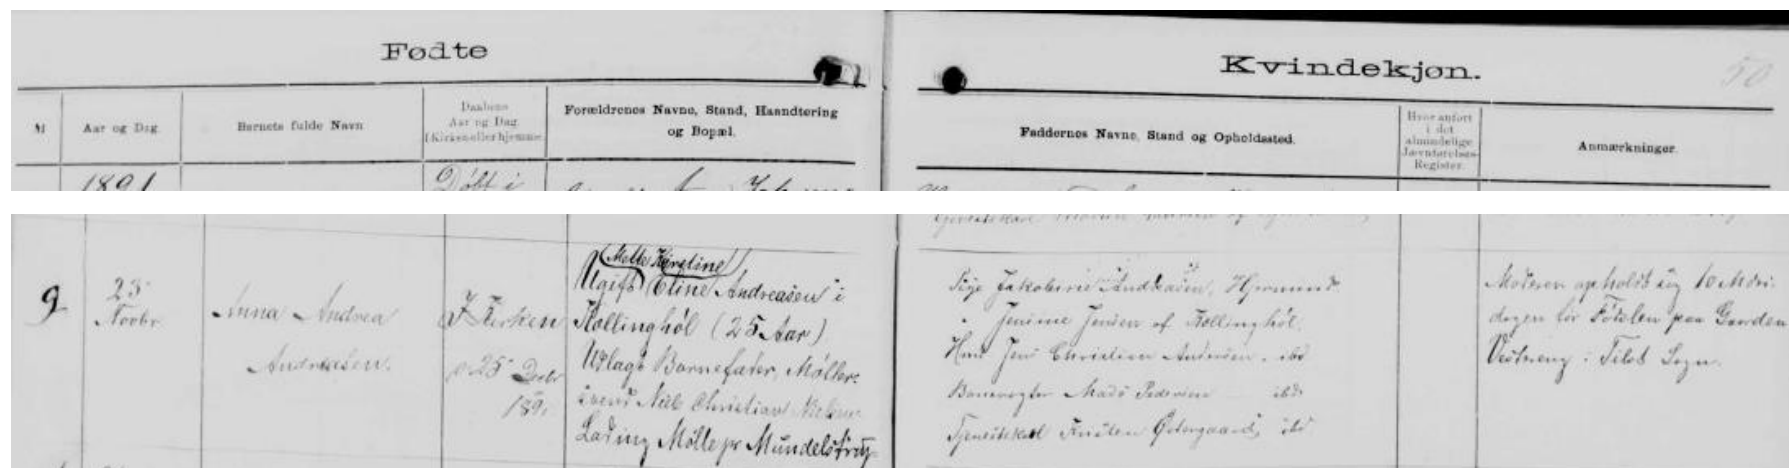 Fødte
Kvindekjøn.
50
№
Aar og Dag.
Barnets fulde Navn
Daabens
Aar og Dag
i Kirken eller hjemme.
Forældrenes Navne, Stand, Haandtering
og Bopæl.
Faddernes Navne, Stand og Opholdssted.
Hvor anført
i det
almindelige
Jævnførelses-
Register.
Anmærkninger.
1891
Døbt i
9
23
Novbr
Anna Andrea
Andreasen.
I Kirken
25 Decbr
1891
Mette Kirstine
Ugift Eline Andreasen i
Kollinghøl (25 Aar)
Udlagt Barnefader, Møller-
svend Niels Christian Nielsen
Lading Mølle pr Mundelstrup
Pige Jakobine Andreasen, Hjemmed
Jensine Jensen af Kollinghøl
Hmd Jens Christian Andersen, ibd
Banevogter Mads Pedersen ibd
Tjenestekarl Kristen Østergaard, ibd
Moderen opholdt sig 10 Mdri-
dagen før Fødslen paa Gaarden
Vestereng i Tilst Sogn.